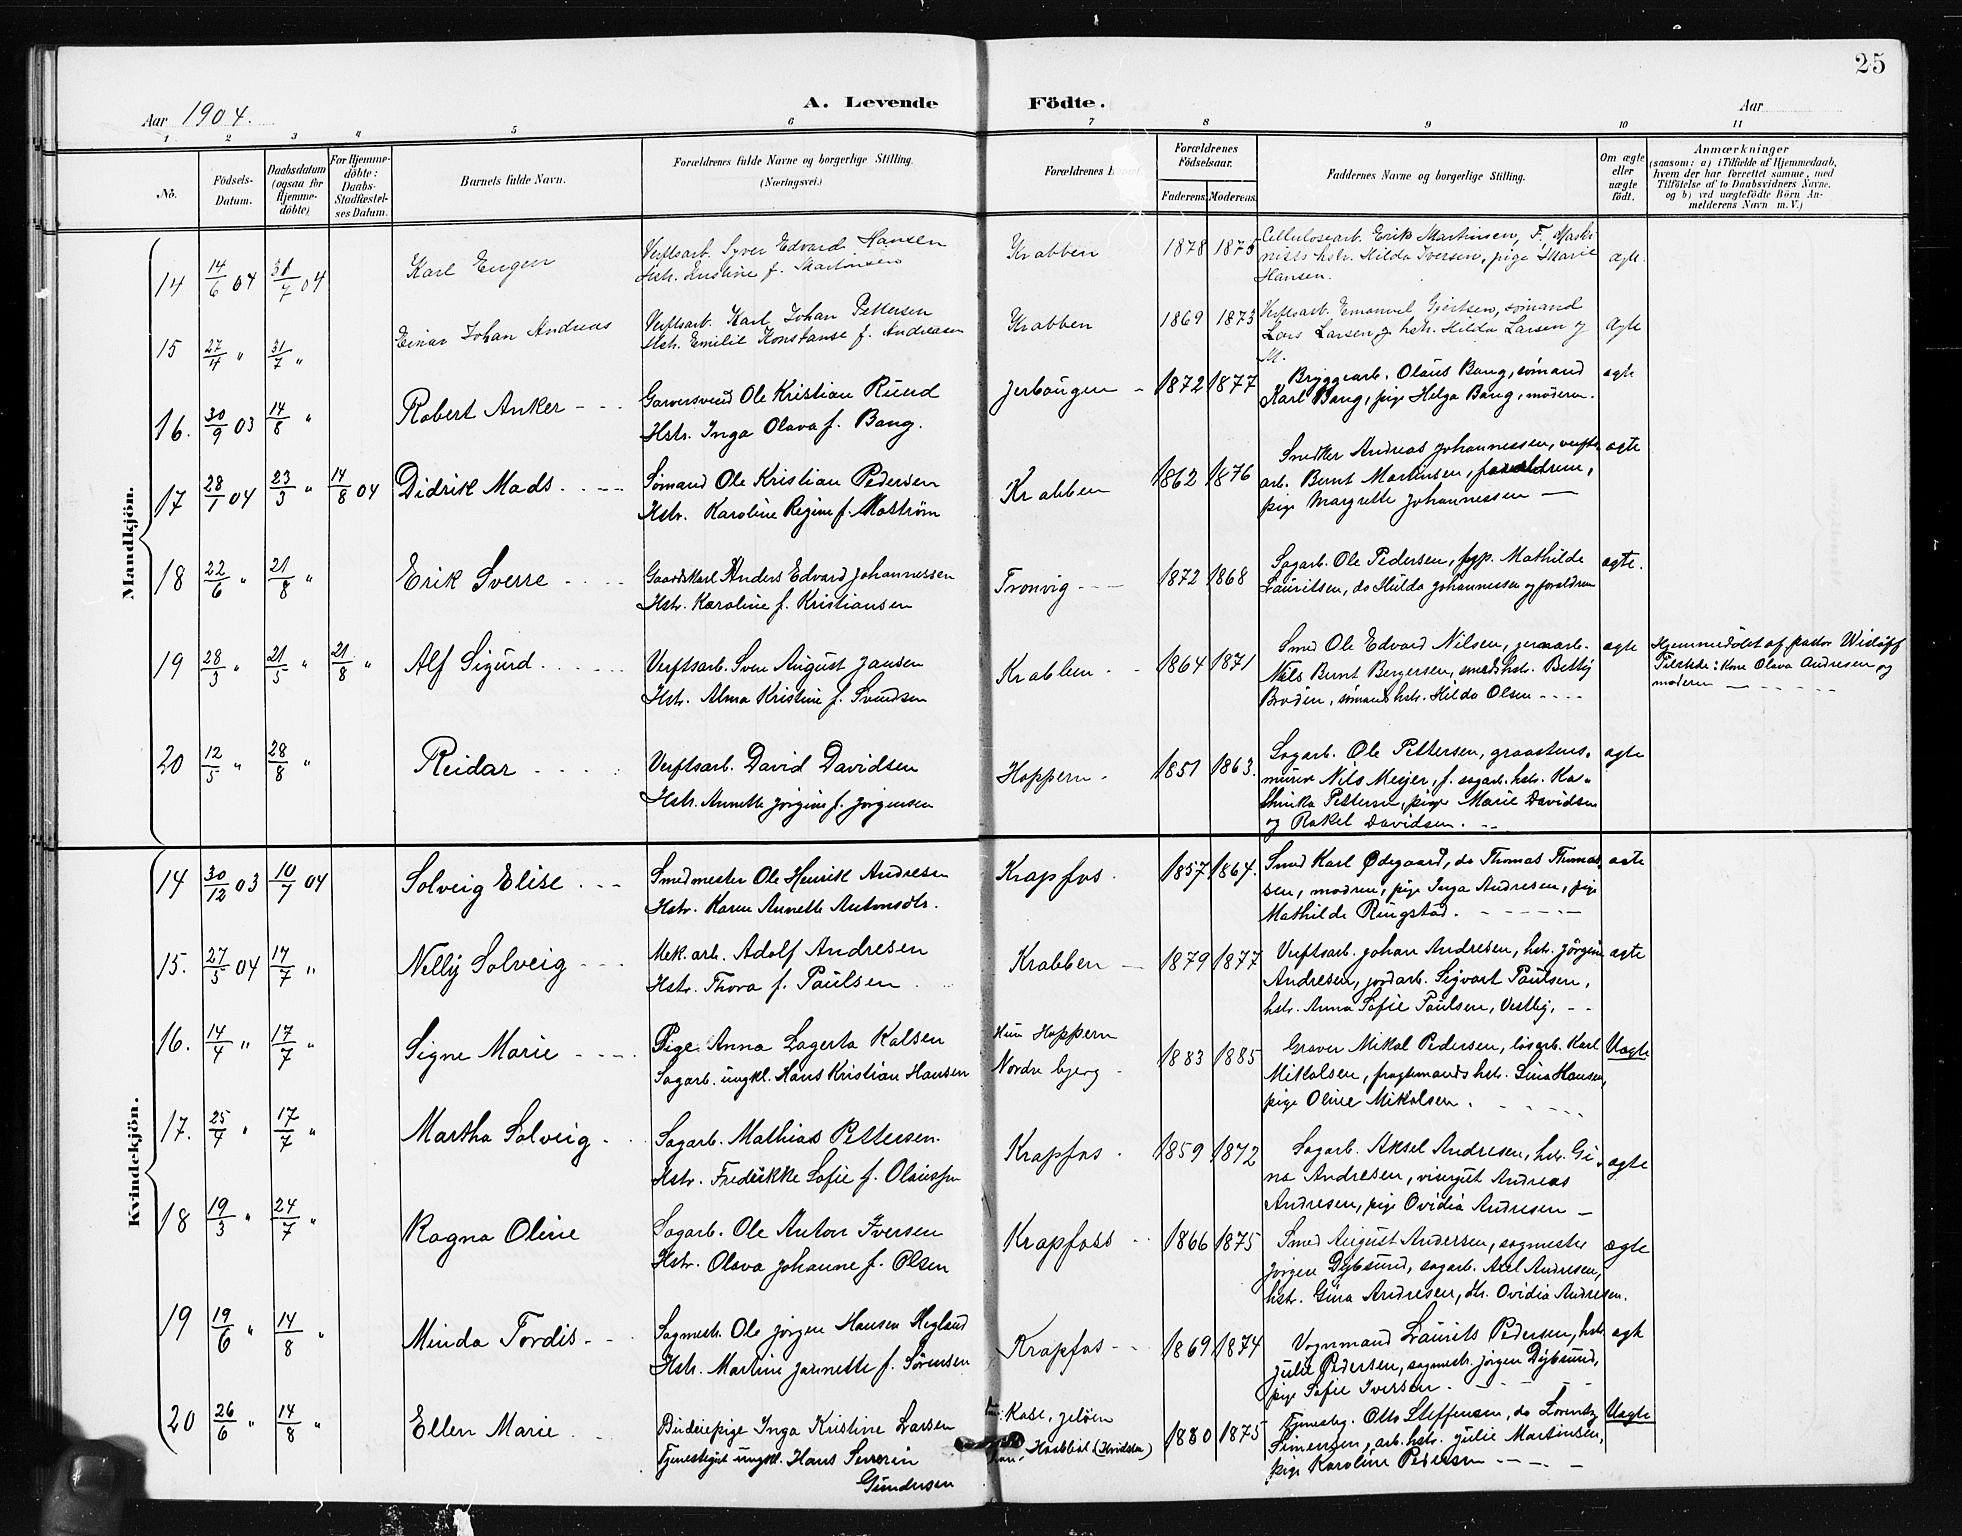 25
Aar 1904.
A. Levende Födte.
Aar
1 2 3 4 5 6 7 8 9 10 11
No.
Födsels-Datum.
Daabsdatum (ogsaa for Hjemme-döbte)
For Hjemme-döbte: Daabs-Stadfæstel-ses Datum.
Barnets fulde Navn.
Forældrenes fulde Navne og borgerlige Stilling.
(Næringsvei.)
Forældrenes
Forældrenes Födselsaar.
Faderens. Moderens.
Faddernes Navne og borgerlige Stilling.
Om ægte eller uægte födt.
Anmærkninger
(saasom: a) i Tilfælde af Hjemmedaab,
hvem der har forrettet samme, med
Tilföielse af to Daabsvidners Navne.
og b) ved uægtefödte Börn An-
melderens Navn m. V.)
Mandkjön.
14 14/6 04 31/7 04 Karl Eugen
Verftsarb. Syver Edvard Hansen
Hstr. f. Martinsen
Krabben 1878 1875
Cellulosearb. Erik Martinsen, F. Maski
nists hstr. Hilda Iversen, pige Marie
Hansen.
ægte.
15 27/4 " 31/7 " Einar Johan Andreas
Verftsarb. Karl Johan Pettersen
Hstr. Emilie Konstanse f. Andreasen
Krabben 1869 1873
Verftsarb. Emanuel Gjertsen, sømand
Lars Larsen og hstr. Hilda Larsen og
M.
Ægte
16. 30/9 03 14/8 " Robert Anker
Garversvend Ole Kristian Ruud
Hstr. Inga Olava f. Bang.
Jerbaugen 1872 1877
Bryggearb. Olaus Bang, sømand
Karl Bang, pige Helga Bang, moderen.
ægte
17 28/1 04 23/3 " 14/8 04 Didrik Mads
Sømand Ole Kristian Pedersen
Hstr. Karoline Regine f. Mostrøm
Krabben 1862 1876
Snedker Andreas Johannessen, verfts
arb. Bernt Martinsen, forældrene,
pige Margrethe Johannessen
ægte
18 22/6 " 21/8 " Erik Sverre
Gaardskarl Anders Edvard Johannessen
Hstr. Karoline f. Kristiansen
Tronvig 1872 1868
Sagarb. Ole Pedersen, Mathilde
Lauritsen, do Hulda Johannessen og forældrene
ægte.
19 28/3 " 21/5 " 21/8 " Alf Sigurd
Verftsarb. Sven August Jansen
Hstr. Alma Kristine f. Svendsen
Krabben 1864 1871
Smed Ole Edvard Nilsen, jernarb.
Nils Bernt Bergersen, smeds hstr. Betty
Brodin, sømands hstr. Hilda Olsen
ægte
Hjemmedöbt af pastor Wisløff
Tilstede: kone Olava Andresen og
moderen
20 12/5 " 28/8 " Reidar
Verftsarb. David Davidsen
Hstr. Annette Jørgine f. Jørgensen
Hoppern 1851 1863.
Sagarb. Ole Pettersen, graastens-
murer Nils Meyer, f. sagarb. hstr. Ka-
thinka Pettersen, pige Marie Davidsen
og Rakel Davidsen.
ægte
Kvindekjön.
14 30/12 03 10/7 04 Solveig Elise
Smedmester Ole Henrik Andresen
Hstr. Karen Annette Antonsdtr.
Krapfos 1857 1864.
Smed Karl Ødegaard, do Thomas Thomas-
sen, modren, pige Inga Andresen, pige
Mathilde Ringstad.
ægte
15. 27/5 04 17/7 " Nelly Solveig
Mek. arb. Adolf Andresen
Hstr. Thora f. Paulsen
Krabben 1879 1877
Verftsarb. Johan Andresen, hstr. Jörgine
Andresen, jordarb. Sigvart Paulsen,
hstr. Anna Sofie Paulsen, Vestby.
ægte
16. 14/4 " 17/7 " Signe Marie
Pige Anna Lagerta Kalsen
Sagarb. ungkl. Hans Kristian Hansen
Hun Hoppern
Nordre bjerg
1883 1885
Graver Mikal Pedersen, løsarb. Karl
Mikalsen, fragtemands hstr. Lina Hansen,
pige Oline Mikalsen.
Uægte
17. 25/4 " 17/7 " Martha Solveig
Sagarb. Mathias Pettersen.
Hstr. Fredrikke Sofie f. Olaussen
Krapfos 1859 1872
Sagarb. Aksel Andresen, hstr. Gi-
na Andresen, visergut Andreas
Andresen, pige Ovidia Andresen
ægte
18 19/3 " 24/7 " Ragna Oline
Sagarb. Ole Anton Iversen
Hstr. Olava Johanne f. Olsen
Krapfoss 1866 1875
Smed August Andersen, sagmester
Jørgen Dybsund, sagarb. Axel Andresen,
hstr. Gina Andresen, Ovidia Andresen.
ægte
19 19/6 " 14/8 " Minda Tordis
Sagmestr. Ole Jörgen Hansen Hegland
Hstr. Martine Jannette f. Sörensen
Krapfos 1869 1874
Vognmand Laurits Pedersen, hstr
Julie Pedersen, sagmestr. Jørgen Dybsund,
pige Sofie Iversen.
ægte
20 26/6 " 14/8 " Ellen Marie
Budeiepige Inga Kristine Larsen
Tjenestegut ungkl. Hans Severin
Gundersen
Kase, Jeløen
1880 1875
Tjenestg. Otto Steffensen, do Lorentz
Simensen, arb. hstr. Julie Martinsen,
pige Karoline Pedersen
Uægte